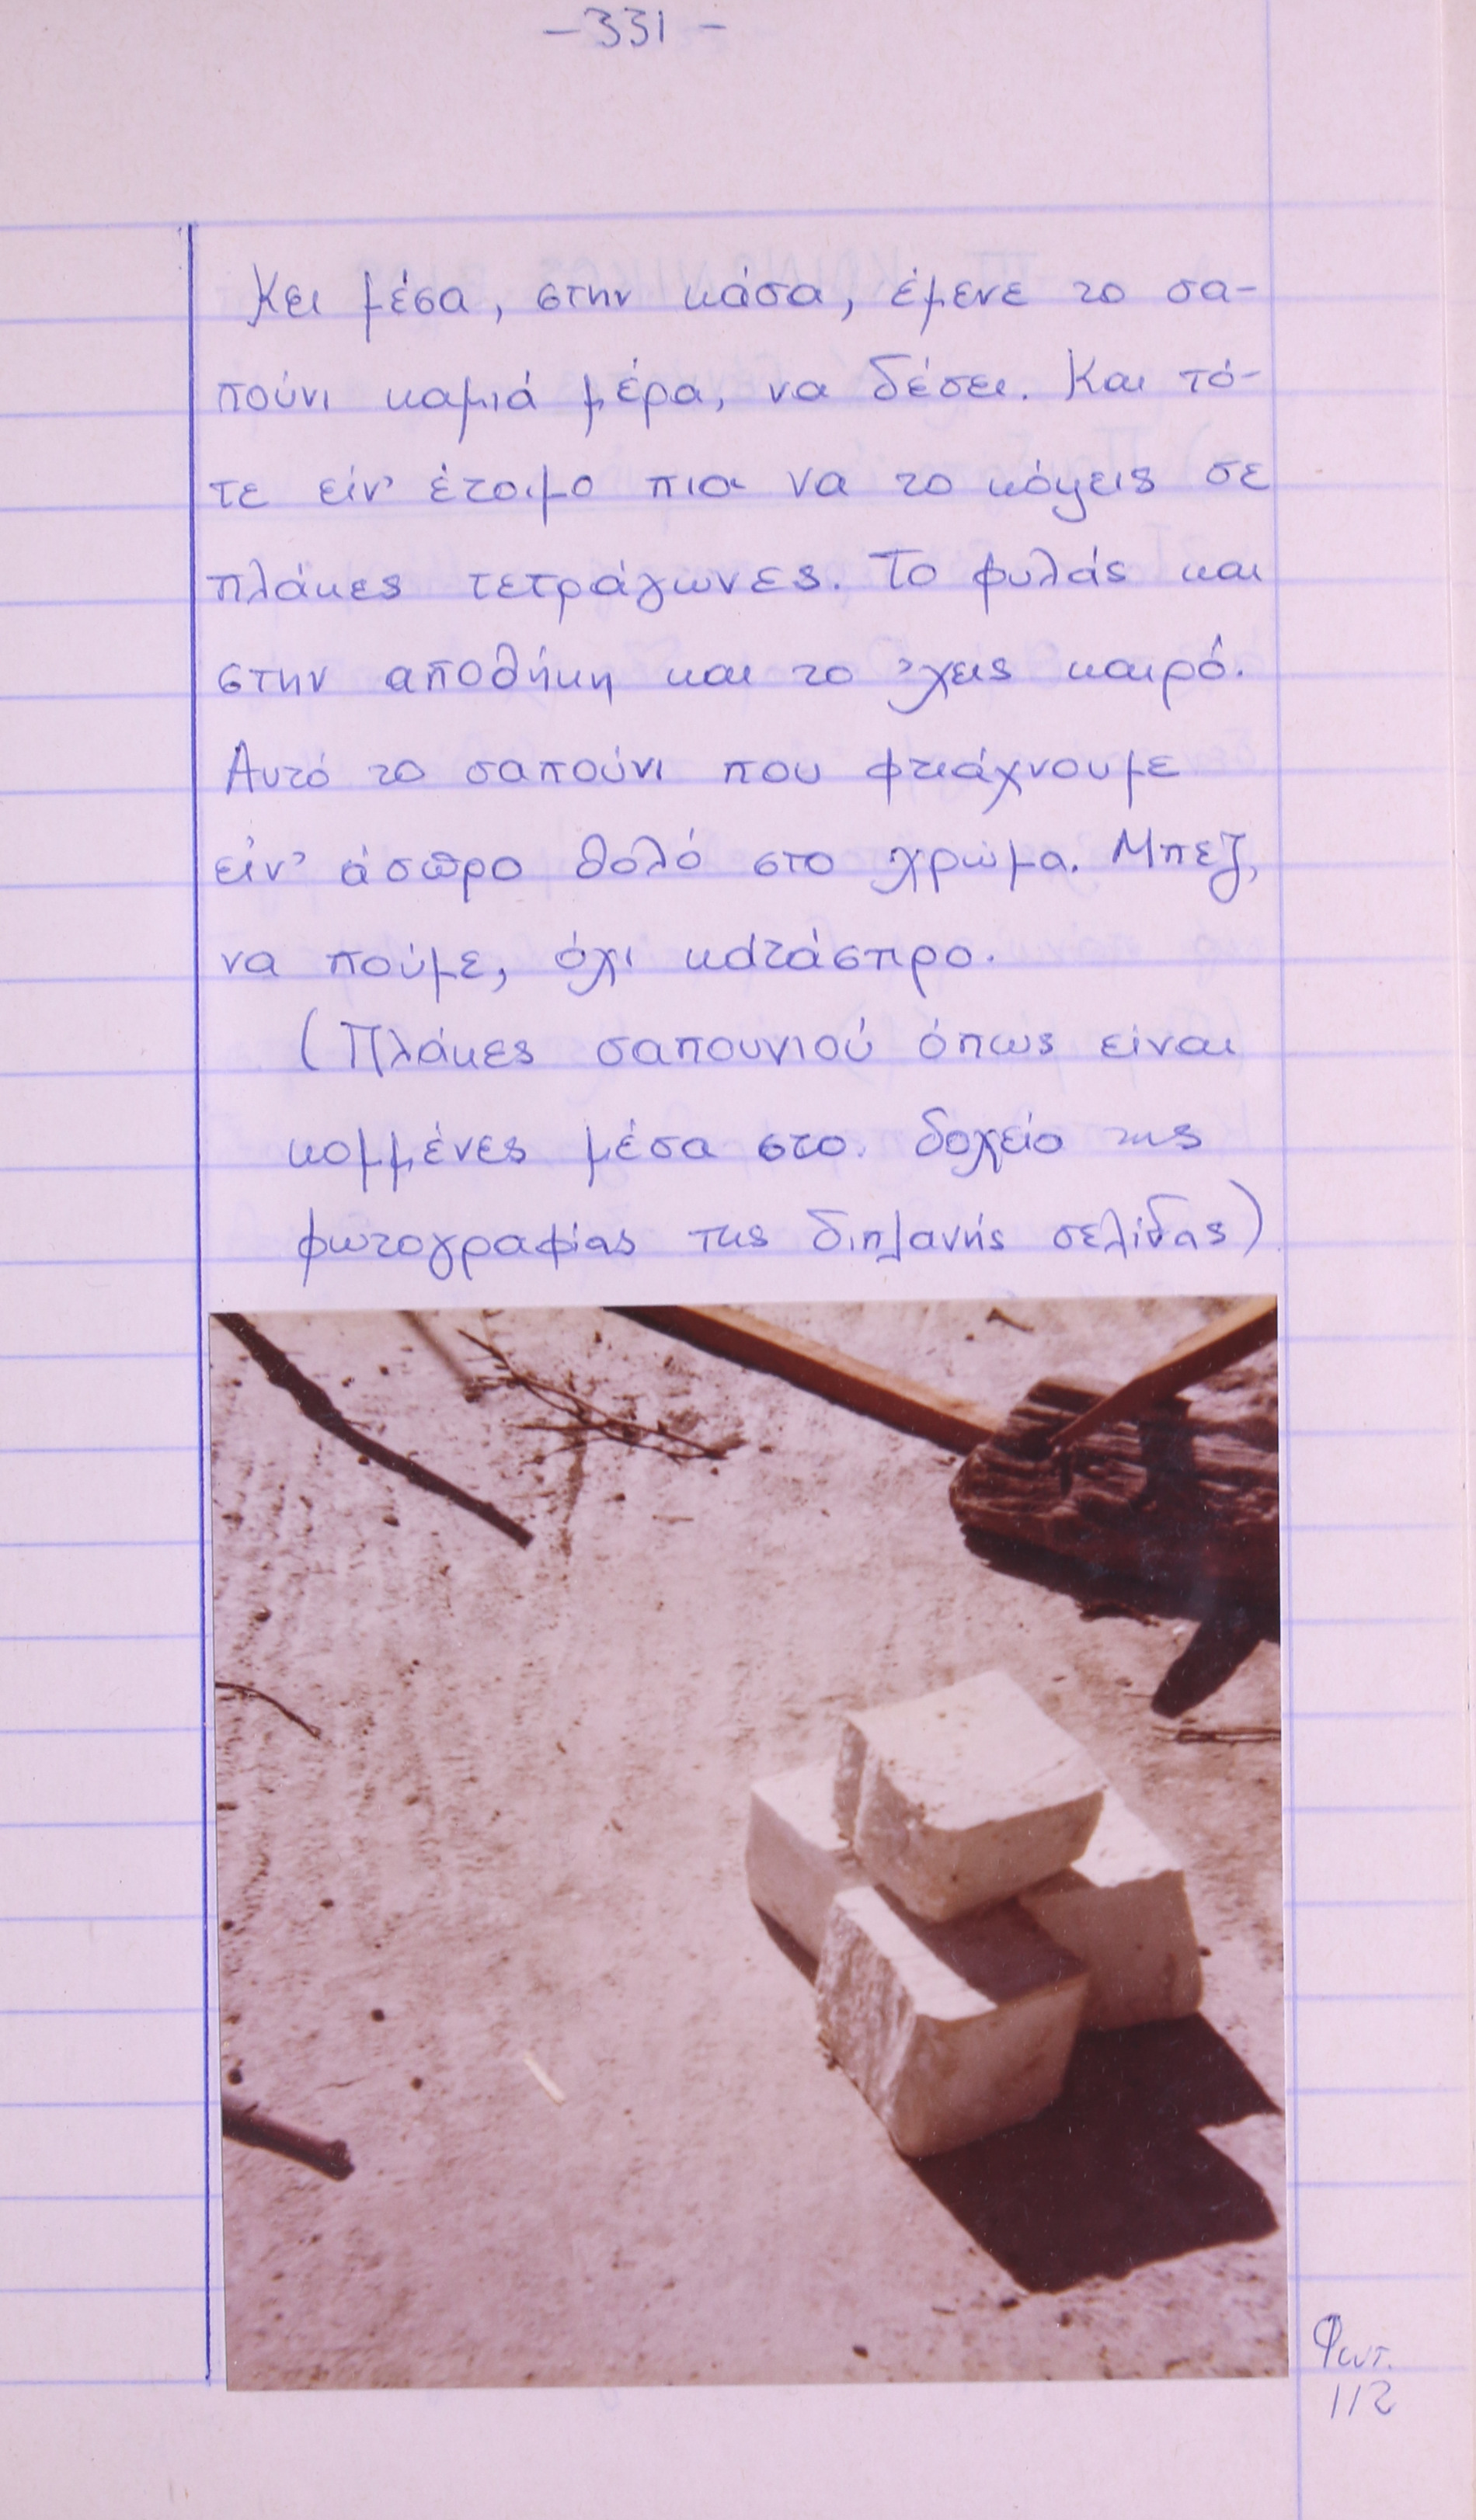 -331-
Κει μέσα, στην κάσα, έμενε το σα-
πούνι καμιά μέρα, να δέσει. Και τό-
τε είν' έτοιμο πια να το κόψεις σε
πλάκες τετράγωνες. Το φυλάς και
στην αποθήκη και το 'χεις καιρό.
Αυτό το σαπούνι που φτιάχνουμε
είν' άσπρο θολό στο χρώμα. Μπεζ,
να πούμε, όχι κατάσπρο.
(Πλάκες σαπουνιού όπως είναι
κομμένες μέσα στο δοχείο της
φωτογραφίας της διπλανής σελίδας)
Φωτ.
112